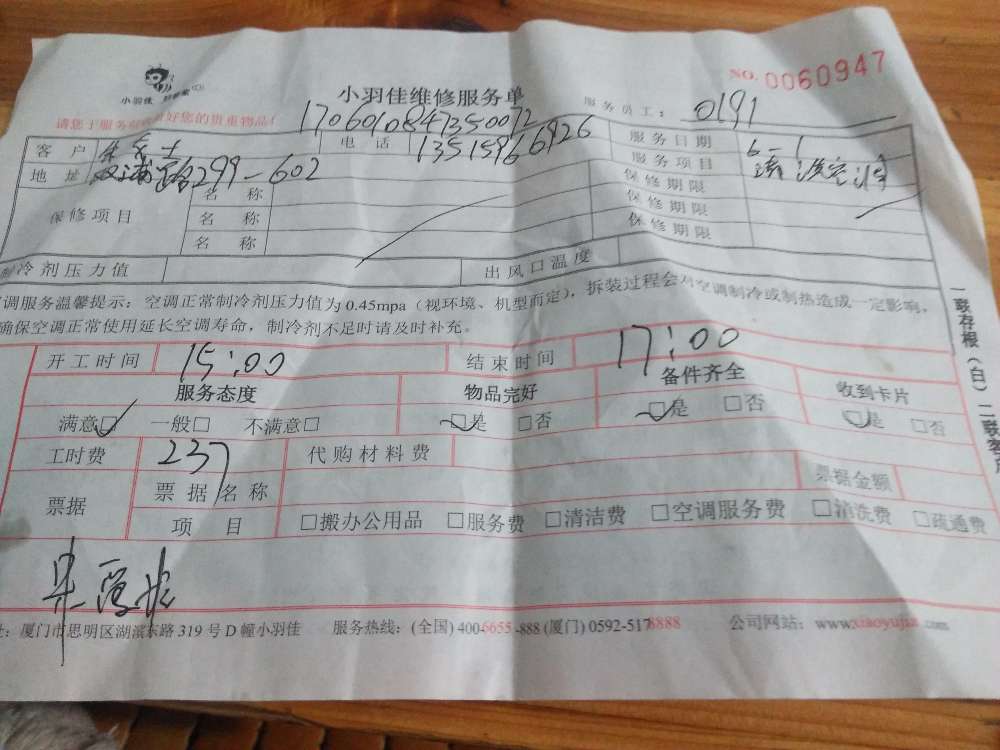 小羽佳
小羽佳维修服务单
NO. 0060947
请您于服务前 好您的贵重物品!
服务员工: 0191
1706010847350072
客户 电话 13515966926 服务日期 6-1
地址 299-602 服务项目 清洗空调
保修项目 名称 保修期限
名称 保修期限
名称 保修期限
制冷剂压力值 出风口温度
空调服务温馨提示:空调正常制冷剂压力值为0.45mpa(视环境、机型而定),拆装过程会对空调制冷或制热造成一定影响,
确保空调正常使用延长空调寿命,制冷剂不足时请及时补充。
开工时间 15:00 结束时间 17:00
服务态度 物品完好 备件齐全 收到卡片
满意☑ 一般□ 不满意□ ☑是 □否 ☑是 □否 ☑是 □否
工时费 237 代购材料费
票据 票据名称 票据金额
项目 □搬办公用品 □服务费 □清洁费 □空调服务费 □清洗费 □疏通费
址:厦门市思明区湖滨东路319号D幢小羽佳 服务热线:(全国)400-6655-888(厦门)0592-5178888 公司网站:www.xiaoyujia.com
一联存根(白)二联客户